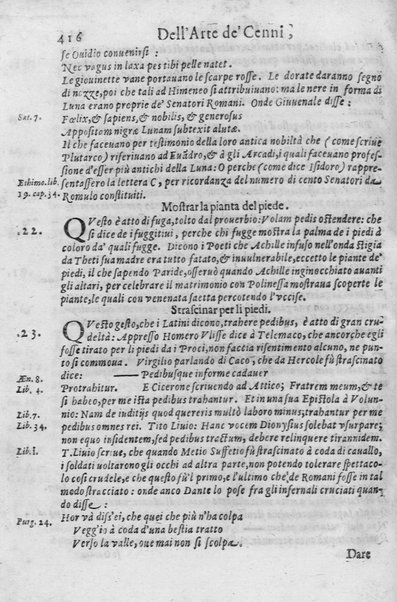 416 Dell'Arte de' Cenni,
se Ouidio conuenirsi :
Nec vagus in laxa pes tibi pelle natet.
Le giouinette vane portauano le scarpe rosse. Le dorate daranno segno
di nozze, poi che tali ad Himeneo si attribuiuano: ma le nere in forma di
Luna erano proprie de' Senatori Romani. Onde Giuuenale disse :
Sat. 7. Fœlix, & sapiens, & nobilis, & generosus
Appositam nigræ Lunam subtexit alutæ.
Il che faceuano per testimonio della loro antica nobiltà che (come scriue
Plutarco) riferiuano ad Euãdro, & à gli Arcadi, i quali faceuano profes-
sione d'esser più antichi della Luna: O perche (come dice Isidoro) rappre-
Ethimo. lib. sentassero la lettera C, per ricordanza del numero di cento Senatori da
19. cap. 34. Romulo constituiti.
Mostrar la pianta del piede.
.22. QVesto è atto di fuga, tolto dal prouerbio: Volam pedis ostendere: che
si dice de i fuggitiui, perche chi fugge mostra la palma de i piedi à
coloro da' quali fugge. Dicono i Poeti che Achille infuso nell'onda stigia
da Theti sua madre era tutto fatato, & inuulnerabile, eccetto le piante de'
piedi, il che sapendo Paride, osseruò quando Achille inginocchiato auanti
gli altari, per celebrare il matrimonio con Polinessa mostraua scoperte le
piante, le quali con venenata saetta percotendo l'vccise.
Strascinar per li piedi.
.23. QVesto gesto, che i Latini dicono, trahere pedibus, è atto di gran cru-
deltà: Appresso Homero Vlisse dice à Telemaco, che ancorche egli
fosse tirato per li piedi da i Proci, non faccia risentimento alcuno, ne pun-
to si commoua. Virgilio parlando di Caco, che da Hercole fù strascinato
dice: —— Pedibusque informe cadauer
Æn. 8. Protrahitur. E Cicerone scriuendo ad Attico; Fratrem meum, & te
Lib. 4. si habeo, per me ista pedibus trahantur. Et in una sua Epistola à Volun-
Lib. 7. nio: Nam de iuditijs quod quereris multò laboro minus, trahantur per me
Lib. 34. pedibus omnes rei. Tito Liuio: Hanc vocem Dionysius solebat vsurpare;
non equo insidentem, sed pedibus tractum, debere relinquere tirannidem.
Lib. I. T. Liuio scriue, che quando Metio Suffetio fù strascinato à coda di cauallo,
i soldati uoltarono gli occhi ad altra parte, non potendo tolerare spettaco-
lo così crudele, e che questo fù'l primo, e l'ultimo che' de Romani fosse in tal
modo stracciato: onde anco Dante lo pose fra gli infernali cruciati quan-
do disse :
Purg. 24. Hor và diss'ei, che quei che più n'ha colpa
Vegg'io à coda d'una bestia tratto
Verso la valle, oue mai non si scolpa.
Dare